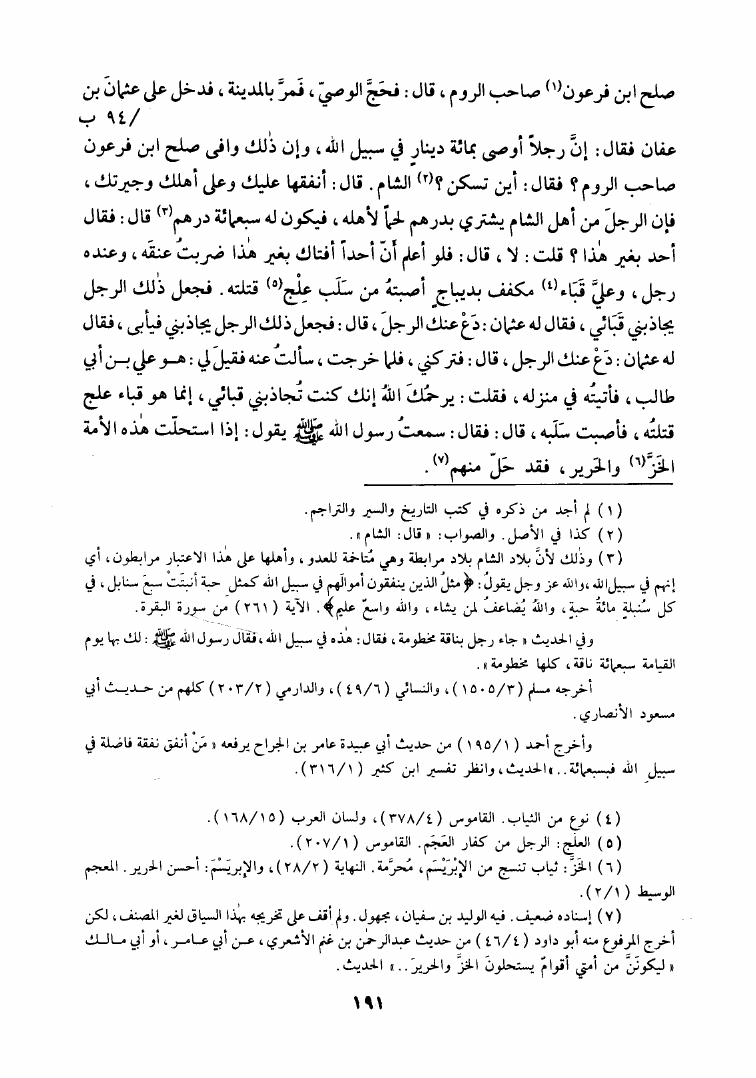 صلح ابن فرعون(١) صاحب الروم ، قال : فحَجَّ الوصيّ ، فَمرَّ بالمدينة ، فدخل على عثمانَ بن
/٩٤ ب
عفان فقال : إنَّ رجلاً أوصى بمائة دينارٍ في سبيل الله ، وإن ذٰلك وافى صلح ابن فرعون
صاحب الروم ؟ فقال : أين تسكن ؟(٢) الشام . قال : أنفقها عليك وعلى أهلك وجيرتك ،
فإن الرجلَ من أهل الشام يشتري بدرهم لحماً لأهله ، فيكون له سبعمائة درهم(٣) قال : فقال
أحد بغير هٰذا ؟ قلت : لا ، قال : فلو أعلم أنّ أحداً أفتاك بغير هٰذا ضربتُ عنقَه ، وعنده
رجل ، وعليَّ قَبَاء(٤) مكفف بديباجٍ أصبتهُ من سَلَب عِلْج(٥) قتلته . فجعل ذٰلك الرجل
يجاذبني قَبَائي ، فقال له عثمان : دَعْ عنك الرجلَ ، قال : فجعل ذلك الرجل يجاذبني فيأبى ، فقال
له عثمان : دَعْ عنك الرجل ، قال : فتركني ، فلما خرجت ، سألتُ عنه فقيل لي : هـو علي بـن أبي
طالب ، فأتيتُه في منزله ، فقلت : يرحمُكَ اللهُ إنك كنت تُجاذبني قبائي ، إنما هو قباء علج
قتلتُه ، فأصبت سَلَبه ، قال : فقال : سمعتُ رسول الله ﷺ يقول : إذا استحلّت هٰذه الأمة
الخَزَّ(٦) والحَرير ، فقد حَلّ منهم(٧) .
(١) لم أجد من ذكره في كتب التاريخ والسير والتراجم .
(٢) كذا في الأصل . والصواب : « قال : الشام » .
(٣) وذٰلك لأنَّ بلاد الشام بلاد مرابطة وهي مُتاخمة للعدو ، وأهلها على هٰذا الاعتبار مرابطون ، أي
إنهم في سبيل الله ، والله عز وجل يقول : ﴿ مثلُ الذين ينفقون أموالَهم في سبيل الله كمثلِ حبة أنبتَتْ سبعَ سنابل ، في
كل سُنبلةٍ مائةُ حبةٍ ، واللهُ يُضاعفُ لمن يشاء ، والله واسعٌ عليم﴾ . الآية (٢٦١) من سورة البقرة .
وفي الحديث « جاء رجل بناقة مخطومة ، فقال : هٰذه في سبيل الله ، فقال رسول الله ﷺ : لك بها يوم
القيامة سبعمائة ناقة ، كلها مخطومة » .
أخرجه مسلم (١٥٠٥/٣) ، والنسائي (٤٩/٦) ، والدارمي (٢٠٣/٢) كلهم من حـديـث أبي
مسعود الأنصاري .
وأخرج أحمد (١٩٥/١) من حديث أبي عبيدة عامر بن الجراح يرفعه « مَنْ أنفق نفقة فاضلة في
سبيل الله فبسبعمائة .. » الحديث ، وانظر تفسير ابن كثير (٣١٦/١) .
(٤) نوع من الثياب . القاموس (٣٧٨/٤) ، ولسان العرب (١٦٨/١٥) .
(٥) العلْج : الرجل من كفار العَجَم . القاموس (٢٠٧/١) .
(٦) الخَزّ : ثياب تنسج من الإبْريْسَم ، مُحرَّمة . النهاية (٢٨/٢) ، والإبريَسْم : أحسن الحرير . المعجم
الوسيط (٢/١) .
(٧) إسناده ضعيف . فيه الوليد بن سفيان ، مجهول . ولم أقف على تخريجه بهٰذا السياق لغير المصنف ، لكن
أخرج المرفوع منه أبو داود (٤٦/٤) من حديث عبدالرحمٰن بن غَنم الأشعري ، عـن أبي عـامـر ، أو أبي مـالـك
« ليكونَنَّ من أمتي أقوامٌ يستحلونَ الخزَّ والحريرَ .. » الحديث .
١٩١